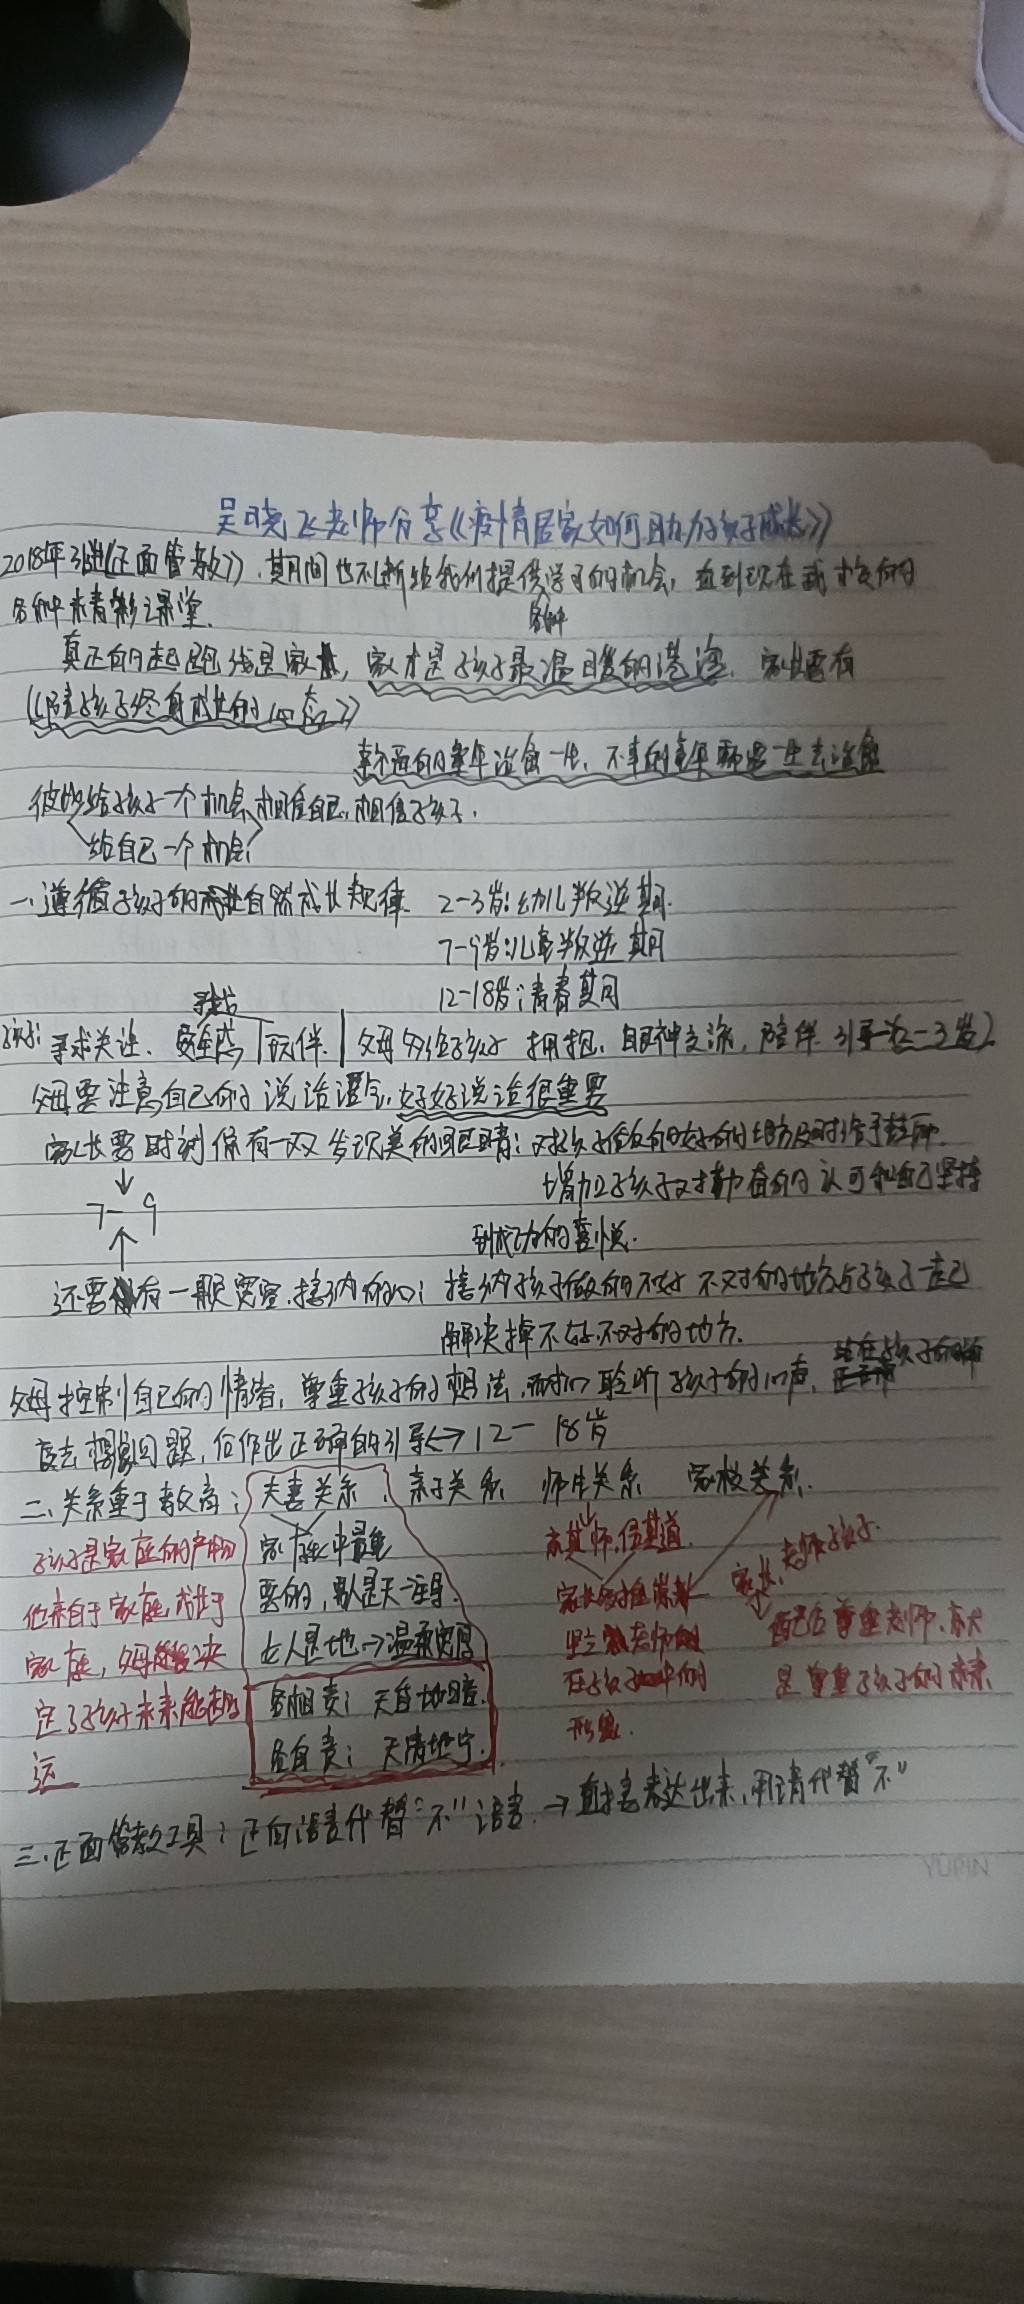 吴晓飞老师分享《疫情居家如何助力孩子成长》
2018年引进《正面管教》,期间也不断给我们提供学习的机会,直到现在我校的
各种
各种未青彩课堂.
真正的起跑线是家庭,家才是孩子最温暖的港湾.家长要有
《陪孩子终身成长的心态》
幸福的童年治愈一生,不幸的童年需要一生去治愈
彼此给孩子一个机会,相信自己,相信孩子.
给自己一个机会
一.遵循孩子的自然成长规律. 2-3岁:幼儿叛逆期.
7-9岁:儿童叛逆期
12-18岁:青春期
寻找
孩子:寻求关注、安全感 玩伴. 父母多给孩子拥抱、眼神交流,陪伴.引导 2-3岁)
父母要注意自己的说话语气,好好说话很重要
家长要时刻保有一双发现美的眼睛:对孩子做的好的地方及时给予鼓励.
7-9 增加孩子对价值的认可和自己坚持
到成功的喜悦.
还要有一颗宽容.接纳的心:接纳孩子做的不好不对的地方与孩子一起
解决掉不好.不对的地方.
父母控制自己的情绪,尊重孩子的想法,耐心聆听孩子的心声,站在孩子的
度去想问题,作出正确的引导<->12-18岁
二.关系重于教育:夫妻关系、亲子关系 师生关系 家校关系.
孩子是家庭的产物 家庭中最重 亲其师,信其道.
他来自于家庭,成长于 要的,男人是天→主导. 家长、老师、孩子.
家庭,父母决 女人是地→温柔宽厚 竖立老师的 自己尊重老师,亦
定了孩子未来能走多 各相责:天昏地暗. 在孩子心中的 是尊重孩子的未来
远 各自责:天清地宁. 形象.
三.正面管教工具:正向语言代替“不”语言.→直接表达出来,用请代替“不”
YUPIN